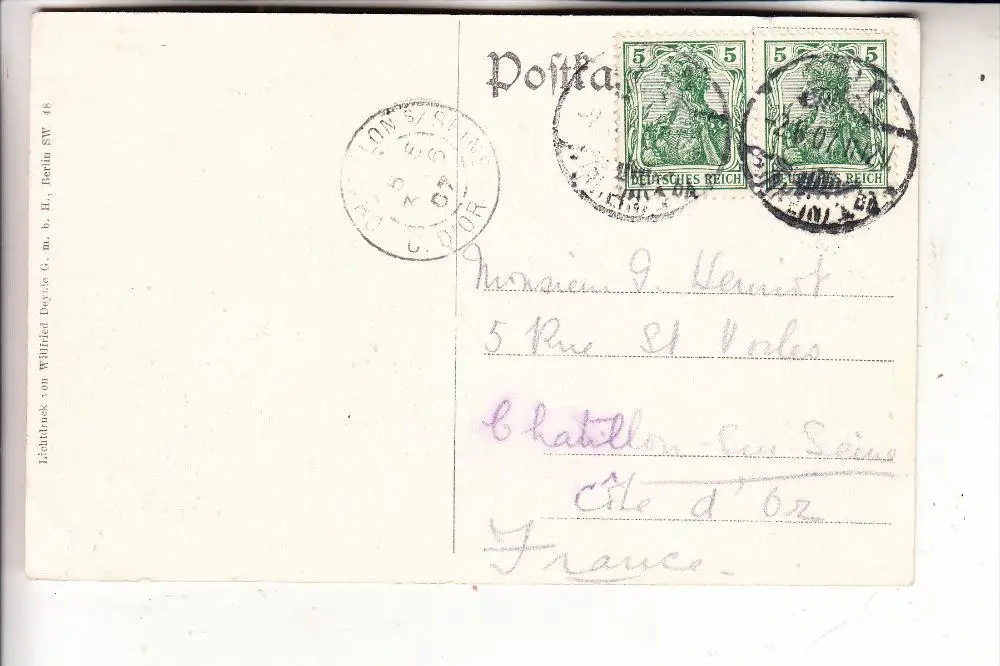 Postka
5 5
DEUTSCHES REICH DEUTSCHES REICH
2.6.07.
CHATILLON S/ SEINE
3 5
6
07
C. D'OR
Monsieur
5 Rue St Vorles
Chatillon-sur Seine
Côte d'Or
France
Lichtdruck von Willfried Deyhle G. m. b. H., Berlin SW 48